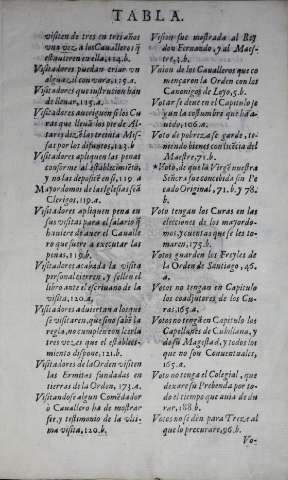 TABLA.
visiten de tres en tres años
una vez a los Cavalleros q̃
estuvieren en ella, 124.b.
Visitadores puedan criar un
alguazil con vara, 119.a.
Visitadores que instrucion han
de llevar, 115.a.
Visitadores averiguen si los Cu
ras que llevã los pie de Al-
tares dizẽ las treinta Mis-
sas por los difuntos, 123.b
Visitadores apliquen las penas
conforme al establecimiẽto,
y no las depositẽ en si, 119 a
Mayordomos de las Iglesias seã
Clerigos, 119.a.
Visitadores apliquen pena en
sus visitas para el salario q̃
huviere de aver el Cavalle
ro que fuere a executar las
penas, 119.b.
Visitadores acabada la visita
personal cierren, y sellen el
libro ante el escrivano de la
visita, 120.a,
Visitadores adviertan a los que
se visitaren, que sino sabẽ la
regla, no cumplen con leerla
tres vezes que el estableci-
miento dispone, 121.b.
Visitadores de la Orden visiten
las Ermitas fundadas en
tierras de la Orden, 173.a.
Visitandose algun Comẽdador
ò Cavallero ha de mostrar
fee, y testimonio de la ulti-
ma visita, 120.b.
Vision fue mostrada al Rey
don Fernando, y al Maes-
tre, 3.b.
Union de los Cavalleros que co
mençaron la Orden con los
Canonigos de Loyo, 5.b.
Votar se deve en el Capitulo se
gun la costumbre que hà a-
vido, 106.a.
Voto de pobreza se guarde, te-
niendo bienes con licẽcia del
Maestre, 71.b.
Voto, de que la Virgẽ nuestra
Señora fue concebida sin Pe
cado Original, 71.b. y 78.
b.
Voto tengan los Curas en las
elecciones de los mayordo-
mos, y cuentas que se les to-
maren, 175.b.
Votos guarden los Freyles de
la Orden de Santiago, 46.
a.
Votos no tengan en Capitulo
los coadjutores, de los Cu-
ras, 165.a.
Votos no tengã en Capitulo los
Capellanes de
su Magestad, y todos los
que no son Conventuales,
165.a.
Voto no tenga el Colegial, que
dexare su Prebenda por to-
do el tiempo que avia de du
rar, 188.b.
Votos no se dèn para Treze al
que lo procurare, 96.b.
Vo-